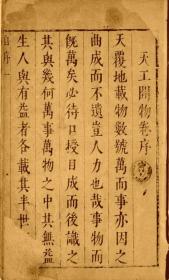 天工開物卷序
天覆地載物數號萬而事亦因之
曲成而不遺豈人力也哉事物而
旣萬矣必待口授目成而後識之
其與幾何萬事萬物之中其無益
生人與有益者各載其半世